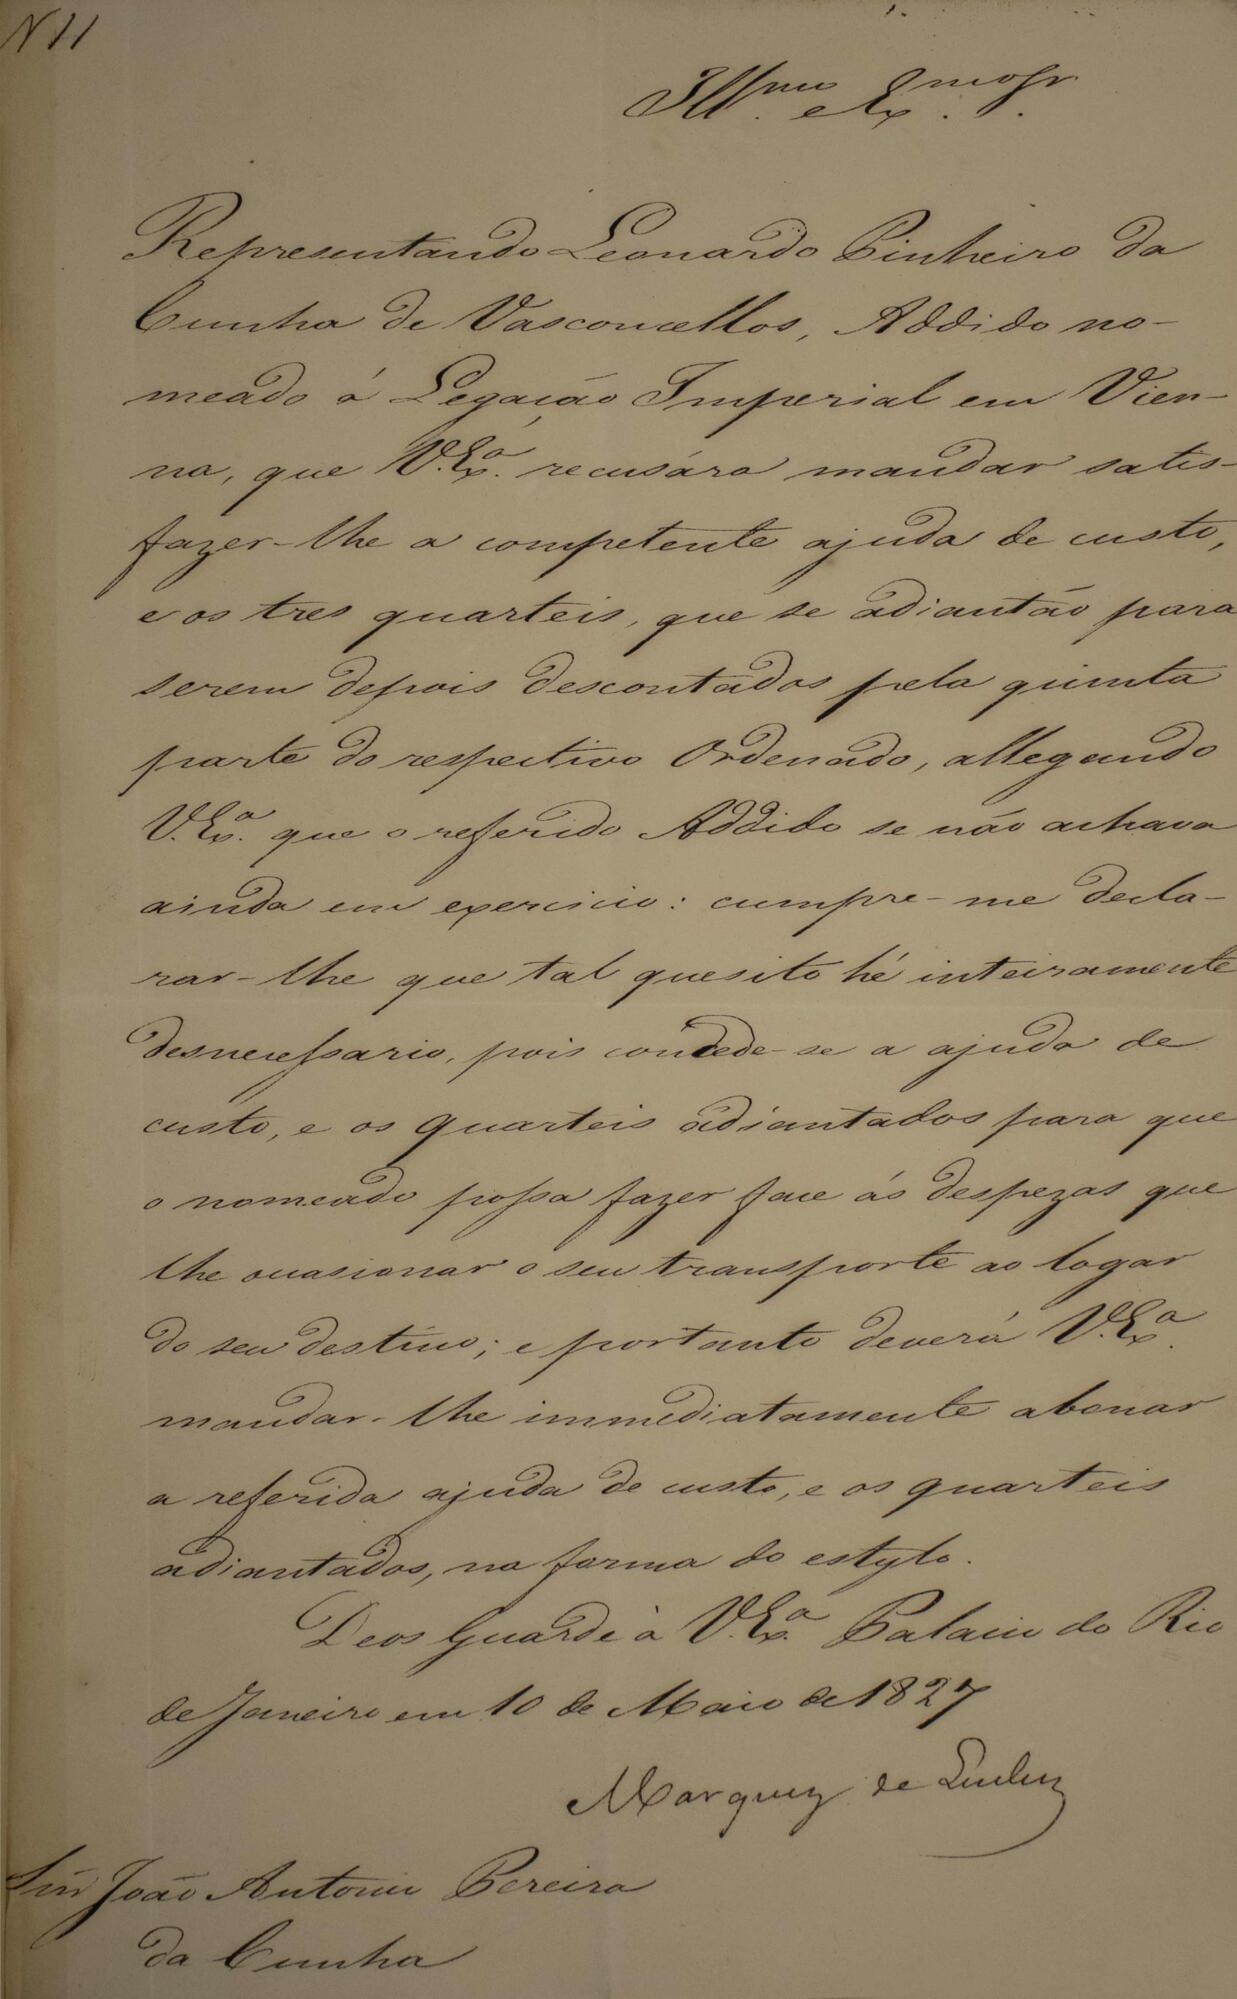 N 11
Ill.mo e Ex.mo Sr.
Representando Leonardo Pinheiro da
Cunha de Vasconcellos, Addido no-
meado á Legação Imperial em Vien-
na, que V. Ex.a recusára mandar satis-
fazer-lhe a competente ajuda de custo,
e os tres quarteis, que se adiantão para
serem depois descontados pela quinta
parte do respectivo Ordenado, allegando
V. Ex.a que o referido Addido se não achava
ainda em exercicio: cumpre-me decla-
rar-lhe que tal quesito hé inteiramente
desnecessario, pois concede-se a ajuda de
custo, e os quarteis adiantados para que
o nomeado possa fazer face ás despezas que
lhe occasionar o seu transporte ao logar
do seu destino; e portanto deverá V. Ex.a
mandar-lhe immediatamente abonar
a referida ajuda de custo, e os quarteis
adiantados, na forma do estylo.
Deos Guarde a V. Ex.a Palacio do Rio
de Janeiro em 10 de Maio de 1827
Marquez de Queluz
Snr João Antonio Pereira
da Cunha